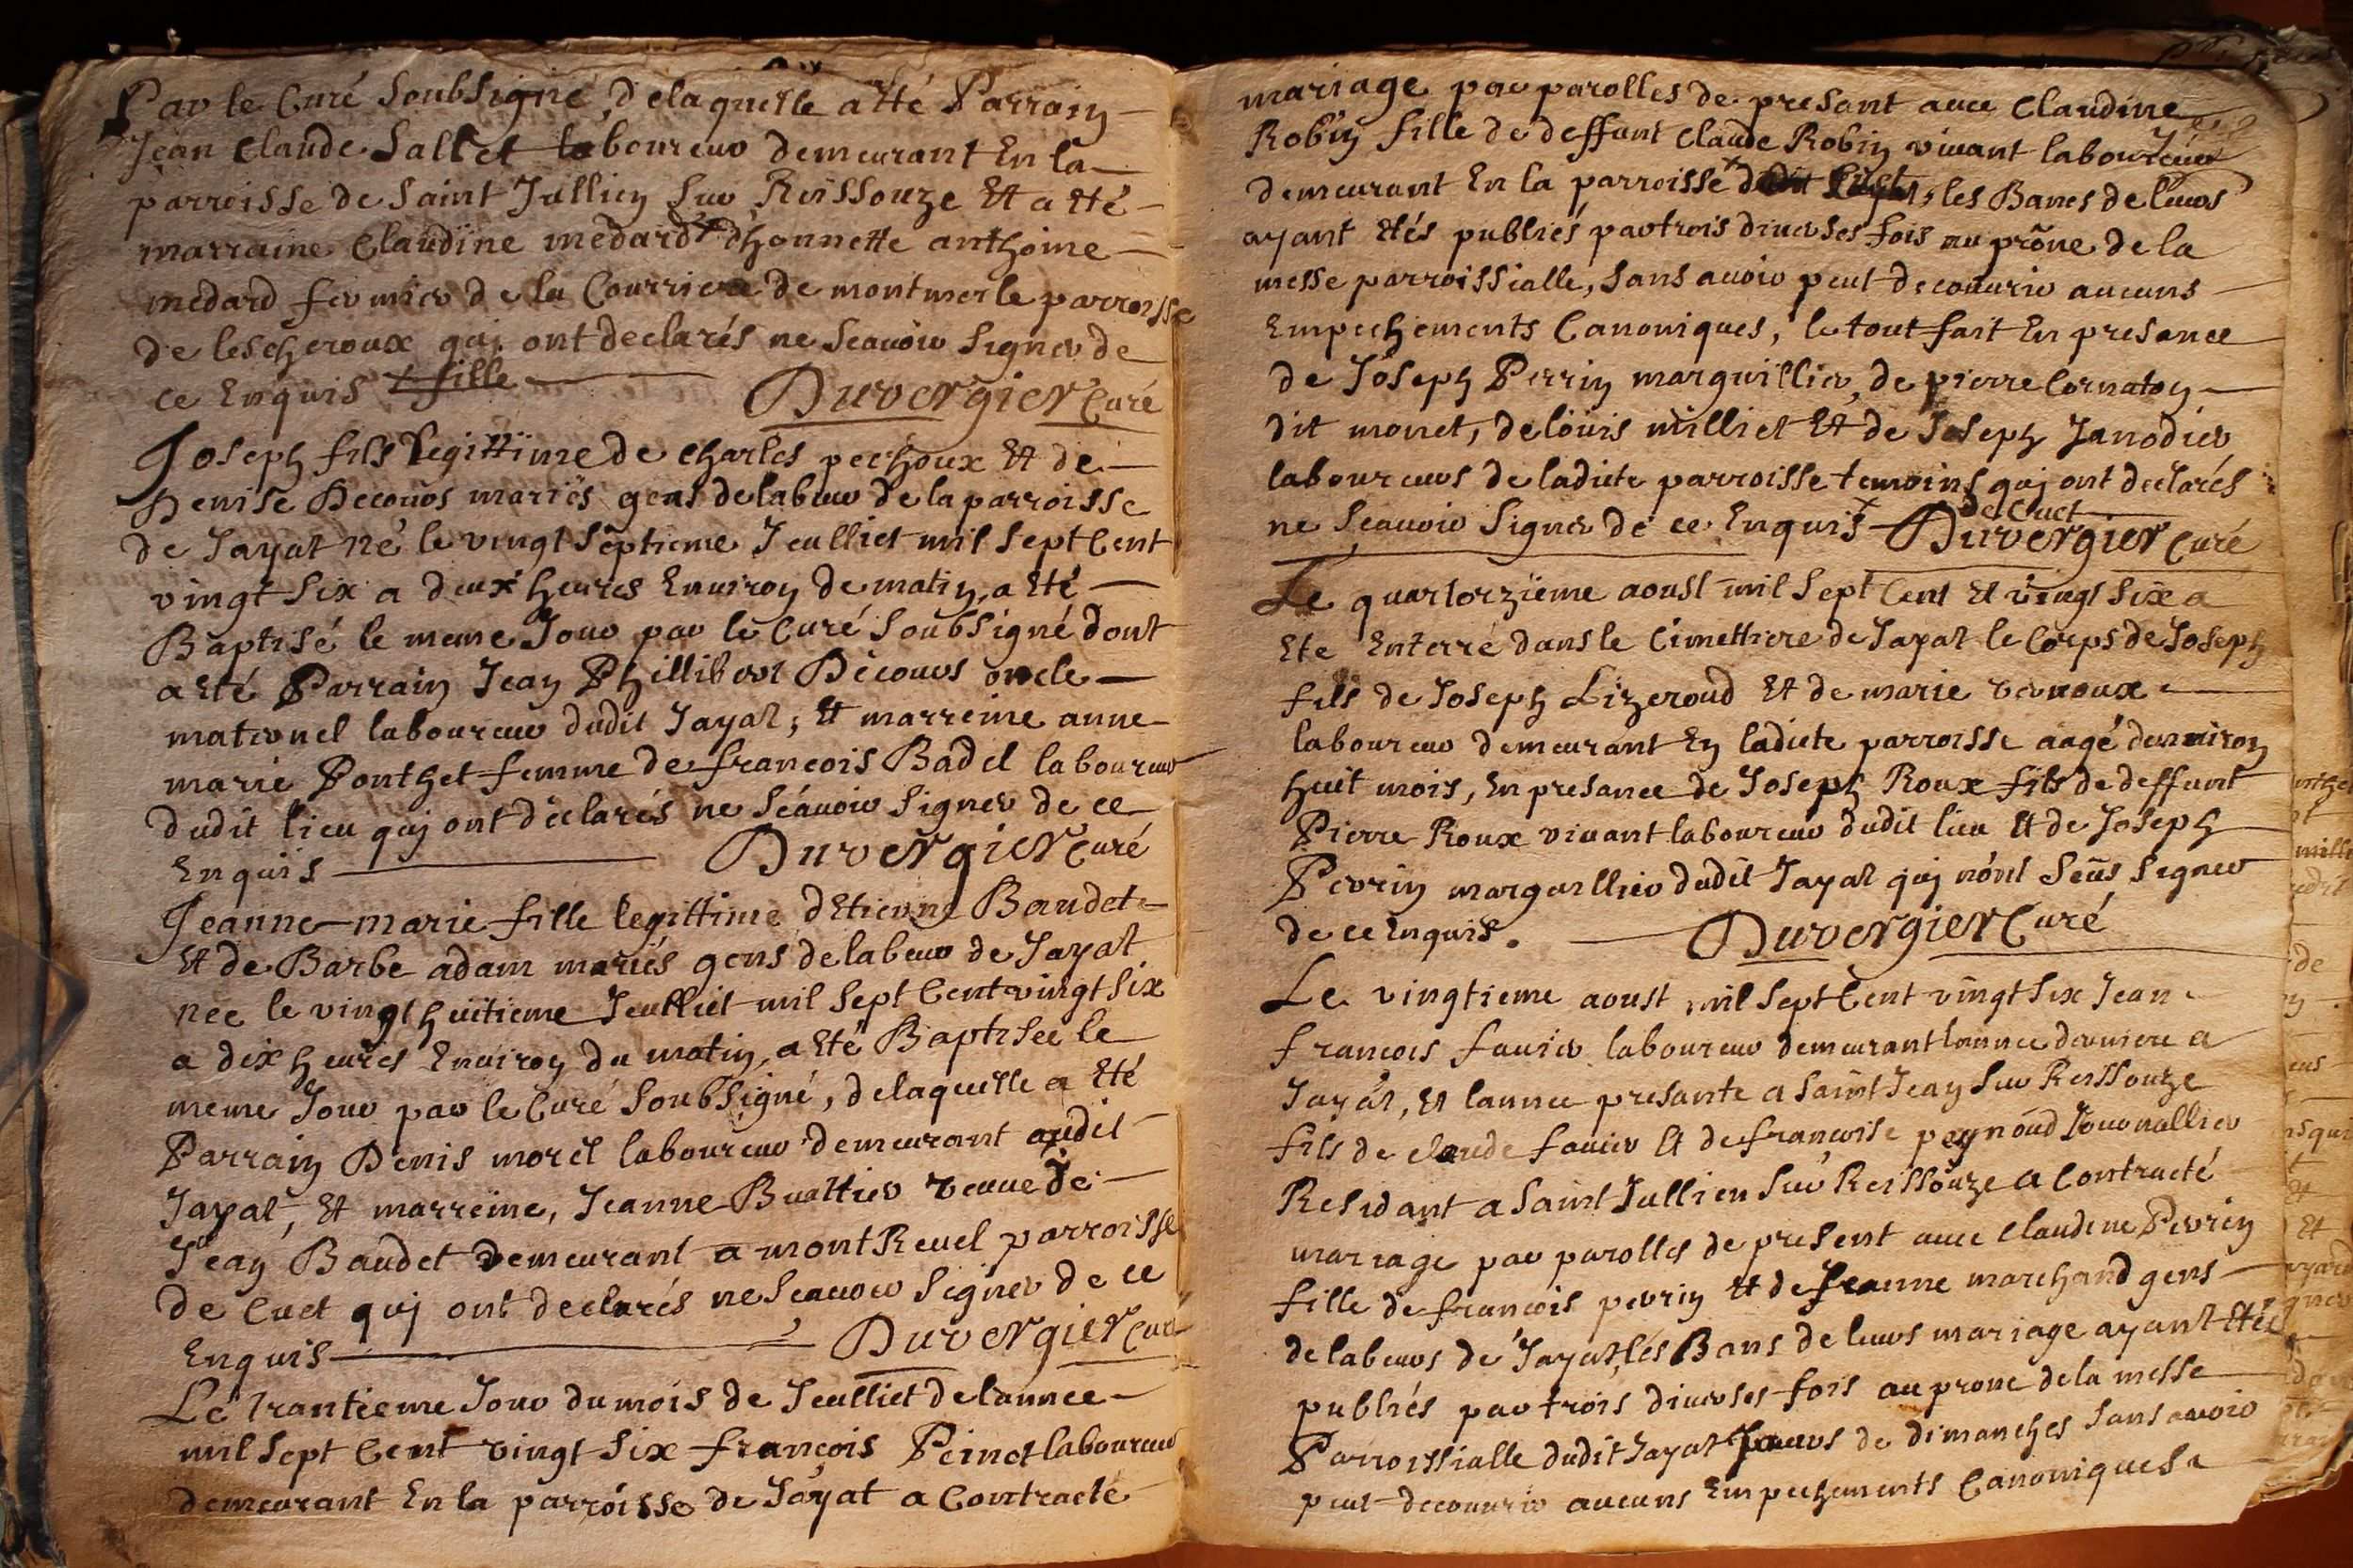 Par le Curé soubsigné, delaquelle a eté Parrain
Jean Claude Sallet laboureur demeurant En la
parroisse de saint Jullien sur Reissouze Et a eté
marraine Claudine medard + d'honnette anthoine
medard fermier de la Courriere de montmerle parroisse
de lescheroux qui ont declarés ne scauoir signer de
ce Enquis + fille Duvergier Curé
Joseph fils legittime de charles pechoux Et de
Denise Decours mariés gens de labeur de la parroisse
de Jayat né le vingt septieme Jeulliet mil sept Cent
vingt six a deux heures Enuiron de matin, a eté
Baptisé le meme Jour par le Curé soubsigné dont
a eté Parrain Jean Phillibert Decours oncle
maternel laboureur dudit Jayat, Et marreine anne
marie Ponthet femme de francois Badel laboureur
dudit lieu qui ont declarés ne scauoir signer de ce
Enquis Duvergier Curé
Jeanne-marie fille legittime d'Etienne Baudet
Et de Barbe adam mariés gens de labeur de Jayat
née le vingt huitieme Jeulliet mil sept Cent vingt six
a dix heures Enuiron du matin, a eté Baptisée le
meme Jour par le Curé soubsigné, delaquelle a eté
Parrain Denis morel laboureur demeurant audit
Jayat, Et marreine, Jeanne Buattier veuue de
Jean Baudet demeurant a mont Reuel parroisse
de Cuet qui ont declarés ne scauoir signer de ce
Enquis Duvergier Curé
Le trantieme Jour du mois de Jeulliet de lannee
mil sept Cent vingt six francois Peinet laboureur
demeurant En la parroisse de Jayat a Contracté
mariage par parolles de presant auec Claudine
Robin fille de deffunt Claude Robin viuant laboureur
demeurant En la parroisse + les Bancs de leurs
ayant etés publiés par trois diuerses fois au prône de la
messe parroissialle, sans auoir peut decouurir aucuns
Empechements Canoniques, le tout fait En presance
de Joseph Perrin marguillier, de pierre Cornaton
dit monet, de loüis milliet Et de Joseph Janodier
laboureurs de ladicte parroisse temoins qui ont declarés
ne scauoir signer de ce Enquis + de Cuet Duvergier Curé
Le quartorzieme aoust mil sept Cent Et vingt six a
Ete Enterré dans le Cimettiere de Jayat le Corps de Joseph
fils de Joseph Lizeroud Et de marie vernoux
laboureur demeurant En ladicte parroisse aagé denuiron
huit mois, En presance de Joseph Roux fils de deffunt
Pierre Roux viuant laboureur dudit lieu Et de Joseph
Perrin marguillier dudit Jayat qui n'ont seüs signer
de ce Enquis. Duvergier Curé
Le vingtieme aoust mil sept Cent vingt six Jean
francois fauier laboureur demeurant lannee derniere a
Jayat, Et lannee presante a saint Jean sur Reissouze
fils de claude fauier Et de francoise peynoud Journallier
Residant a saint Jullien sur Reissouze a Contracté
mariage par parolles de present auec Claudine Perrin
fille de francois perrin Et de Jeanne marchand gens
de labeurs de Jayat, les Bans de leurs mariage ayant etés
publiés par trois diuerses fois au prone de la messe
Parroissialle dudit Jayat Jours de dimanches sans auoir
peut decouurir aucuns Empechements Canoniques